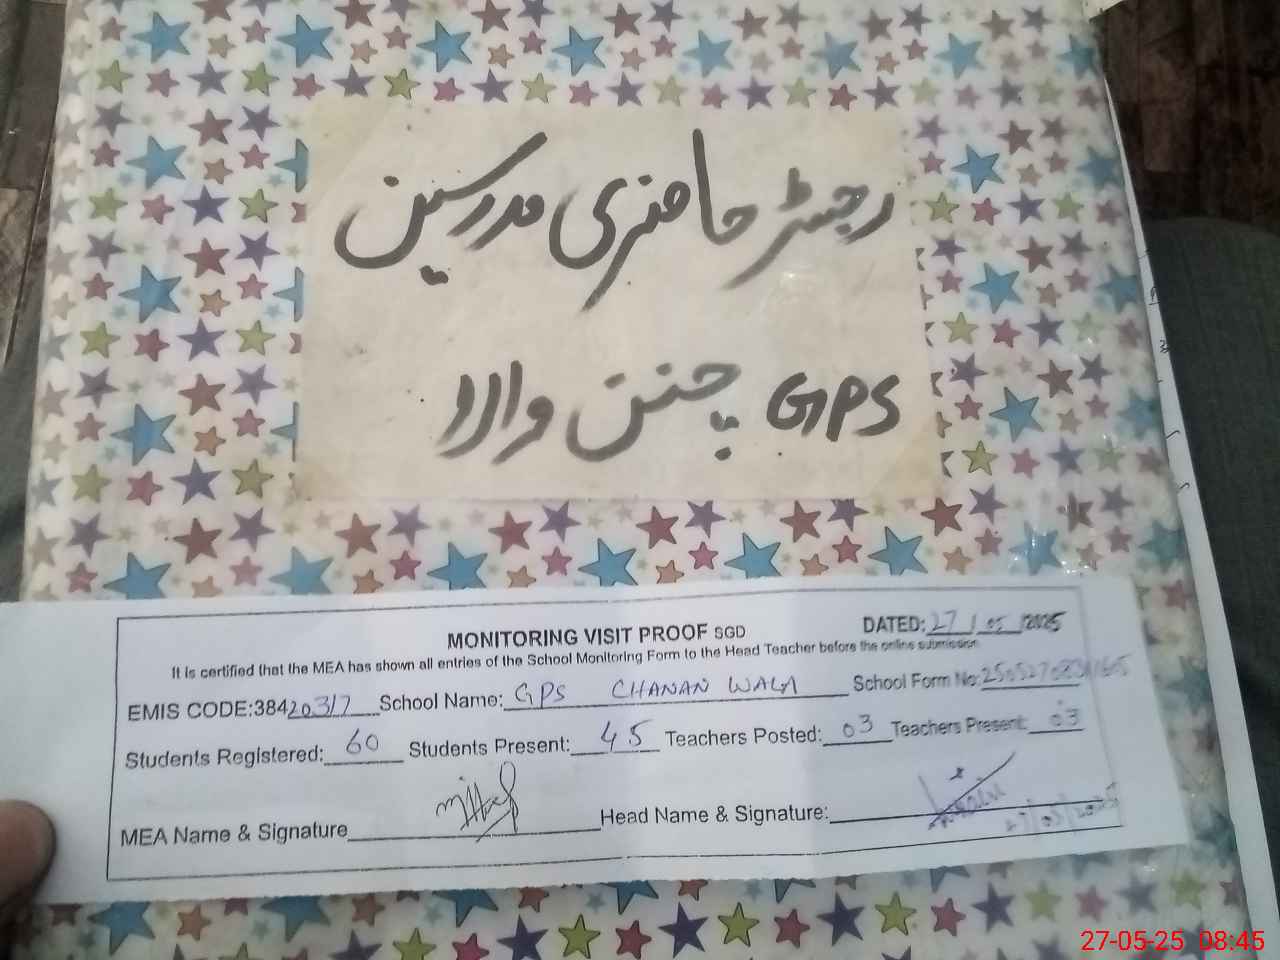 رجسٹر حاضری مدرسین
GPS چنن والا
MONITORING VISIT PROOF SGD
DATED: 27/05/2025
It is certified that the MEA has shown all entries of the School Monitoring Form to the Head Teacher before the online submission
EMIS CODE:38420317 School Name: GPS CHANAN WALA School Form No:
Students Registered: 60 Students Present: 45 Teachers Posted: 03 Teachers Present: 03
MEA Name & Signature Head Name & Signature:
27/05/2025
27-05-25 08:45